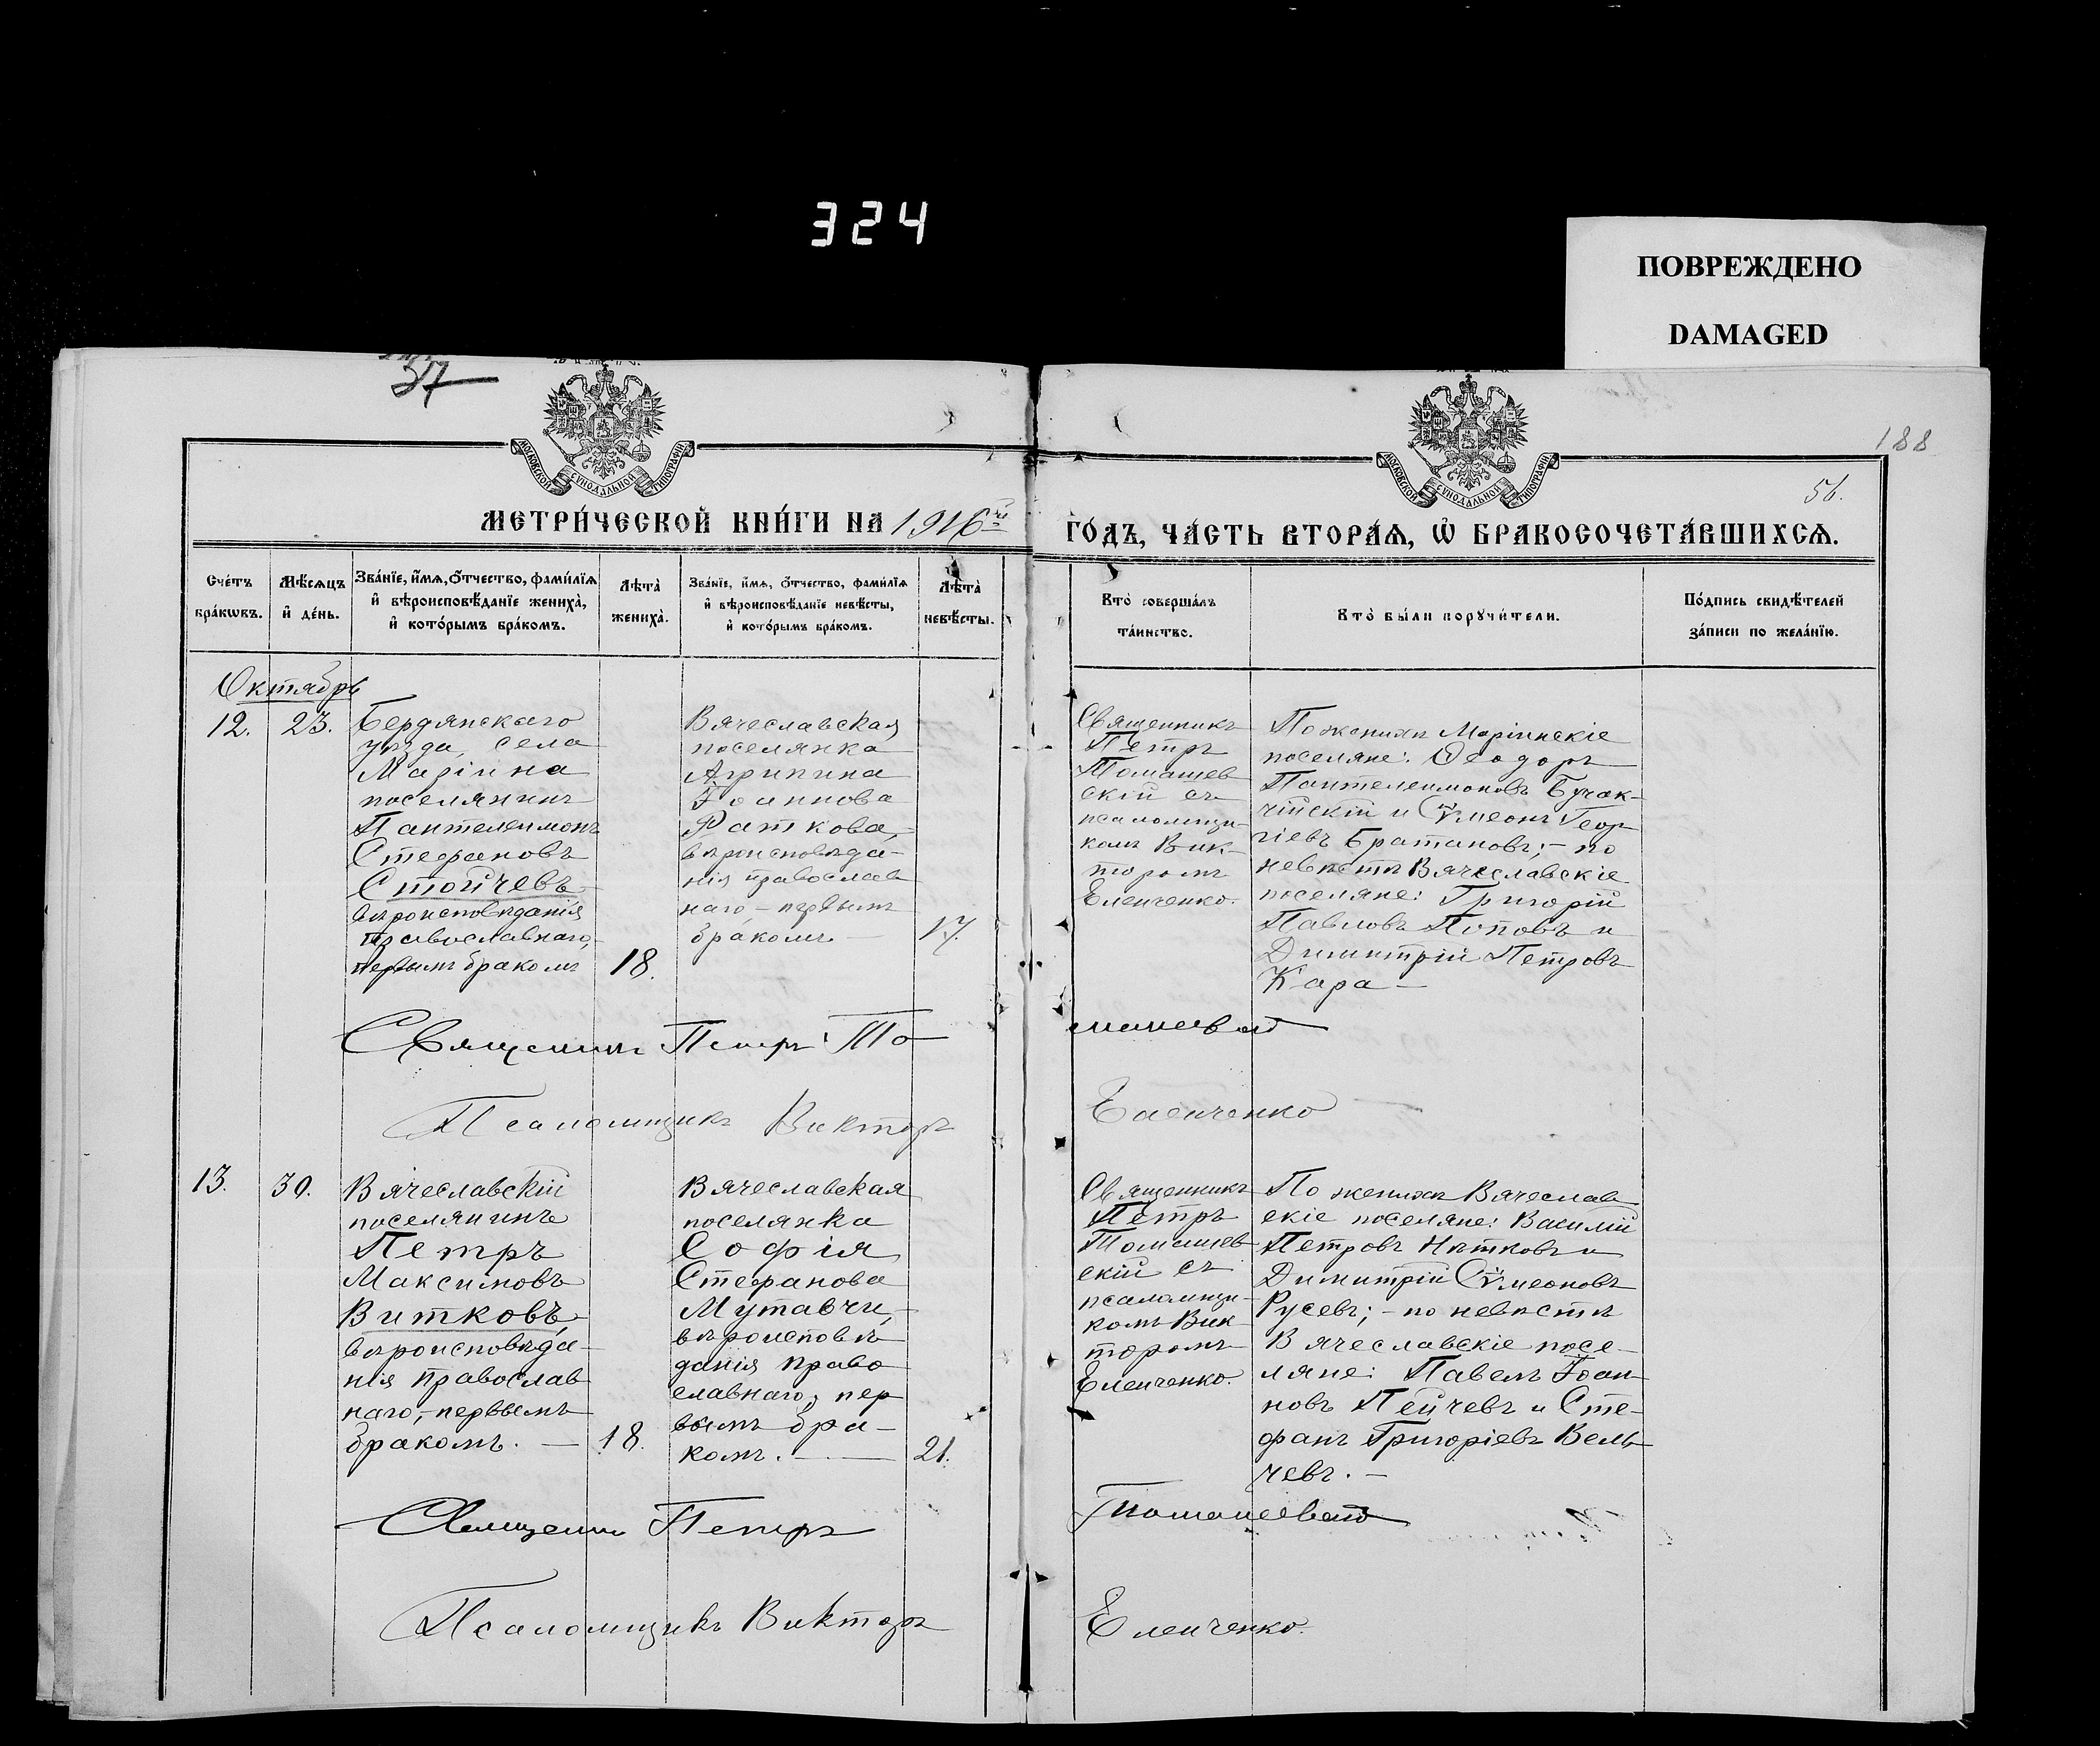 324
ПОВРЕЖДЕНО
DAMAGED
37
188
56.
МОСКОВСКОЙ СѴНОДАЛЬНОЙ ТИПОГРАФІИ
МОСКОВСКОЙ СѴНОДАЛЬНОЙ ТИПОГРАФІИ
МЕТРИ́ЧЕСКОЙ КНИ́ГИ НА 1916й
ГО́ДЪ, ЧА́СТЬ ВТОРА́Ѧ, Ѿ БРАКОСОЧЕТА́ВШИХСѦ.
Сче́тъ
бра́кωвъ.
Мѣ́сѧцъ
и҆ де́нь.
Зва́нїе, и҆́мѧ, ѻ҆́тчество, фами́лїѧ
и҆ вѣроисповѣ́данїе жениха̀,
и҆ кото́рымъ бра́комъ.
Лѣта̀
жениха̀.
Зва́нїе, и҆́мѧ, ѻ҆́тчество, фами́лїѧ
и҆ вѣроисповѣ́данїе невѣ́сты,
и҆ кото́рымъ бра́комъ.
Лѣта̀
невѣ́сты.
Кто̀ соверша́лъ
та́инство.
Кто̀ бы́ли порꙋчи́тели.
По́дпись свидѣ́телей
за́писи по жела́нїю.
Октябрь
12.
23.
Бердянскаго
уѣзда, села
Маріина
поселянинъ
Пантелеимонъ
Стефановъ
Стойчевъ
вѣроисповѣданія
православнаго,
первымъ бракомъ
18.
Вячеславская
поселянка
Агрипина
Іоаннова
Раткова,-
вѣроисповѣда-
нія православ
наго,- первымъ
бракомъ.
17.
Священникъ
Петръ
Томашев
скій съ
псаломщи-
комъ Вик-
торомъ
Еленченко.
По женихѣ Маріинскіе
поселяне: Ѳеодоръ
Пантелеимоновъ Бучак-
чійскій и Сѵмеонъ Геор
гіевъ Братановъ;- по
невѣстѣ Вячеславскіе
поселяне: Григорій
Павловъ Поповъ и
Димитрій Петровъ
Кара —
Священникъ Петръ То
машевскій
Псаломщикъ Викторъ
Еленченко
13.
30.
Вячеславскій
поселянинъ
Петръ
Максимовъ
Витковъ,
вѣроисповѣда-
нія православ
наго,- первымъ
бракомъ. —
18.
Вячеславская
поселянка
Софія
Стефанова
Мутавчи,-
вѣроисповѣ
данія право
славнаго, пер
вымъ бра-
комъ. —
21.
Священникъ
Петръ
Томашев
скій съ
псаломщи-
комъ Вик
торомъ
Еленченко.
По женихѣ Вячеслав
скіе поселяне: Василій
Петровъ Нѣтковъ и
Димитрій Сѵмеоновъ
Русевъ;- по невѣстѣ
Вячеславскіе посе-
ляне: Павелъ Іоан-
новъ Пейчевъ и Сте-
фанъ Григоріевъ Вель-
чевъ. —
Священникъ Петръ
Томашевскій
Псаломщикъ Викторъ
Еленченко.